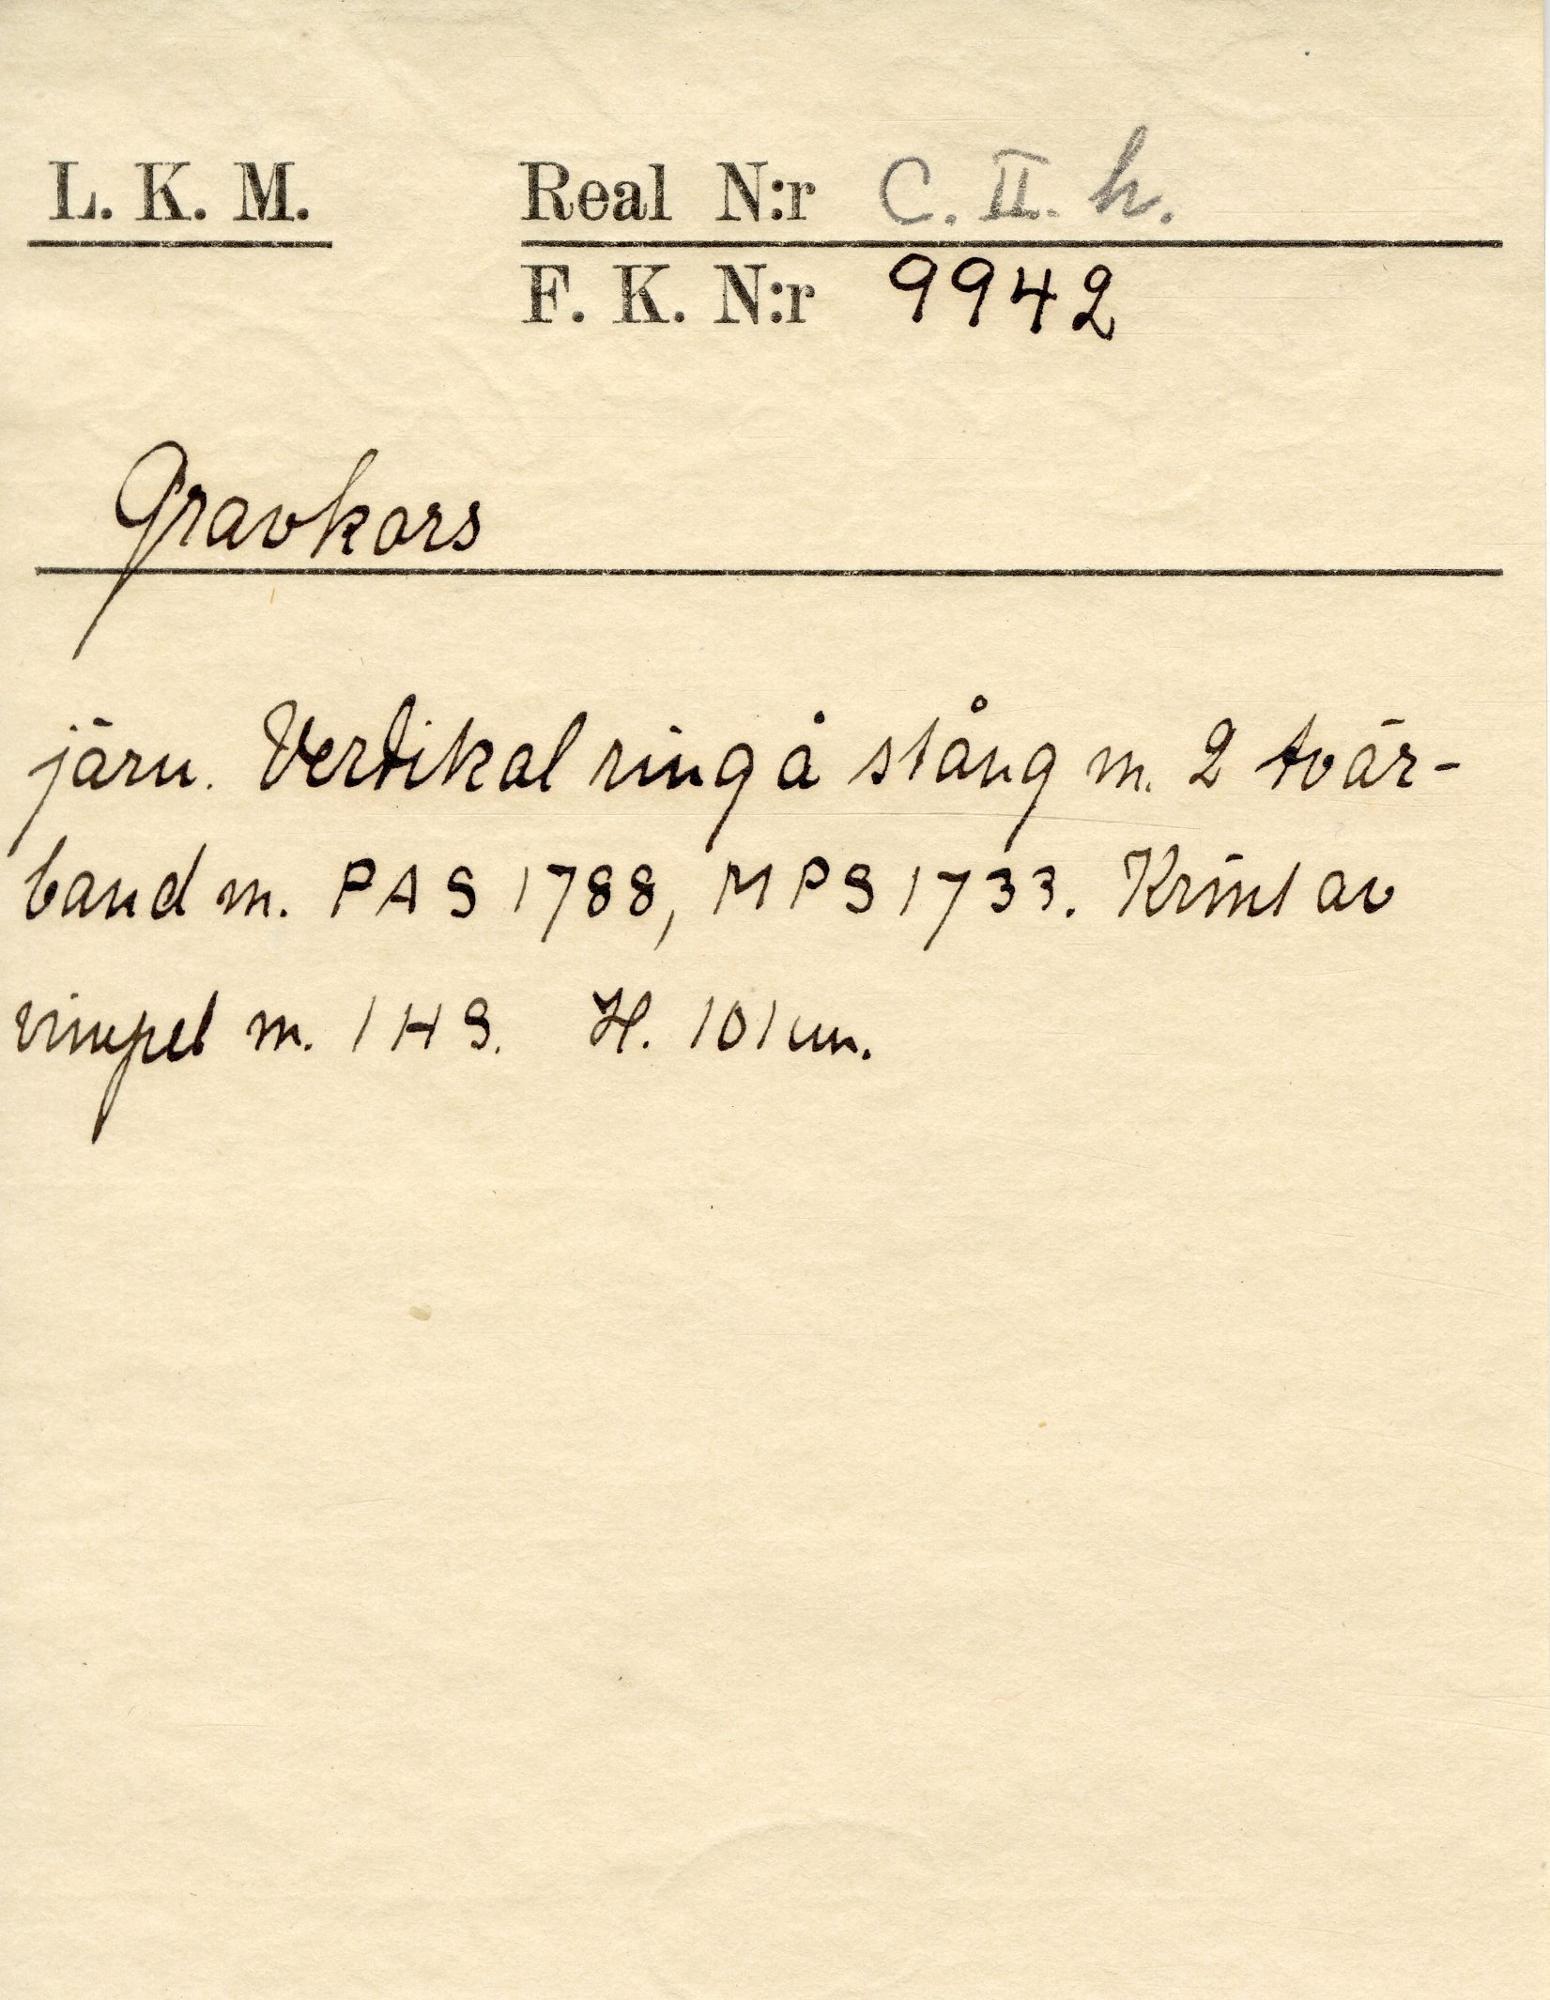 L. K. M. Real N:r C. II. h.
F. K. N:r 9942
Gravkors
järn. Vertikal ring å stång m. 2 tvär-
band m. PAS 1788, MPS 1733. Krönt av
vimpel m. IHS. H. 101 cm.